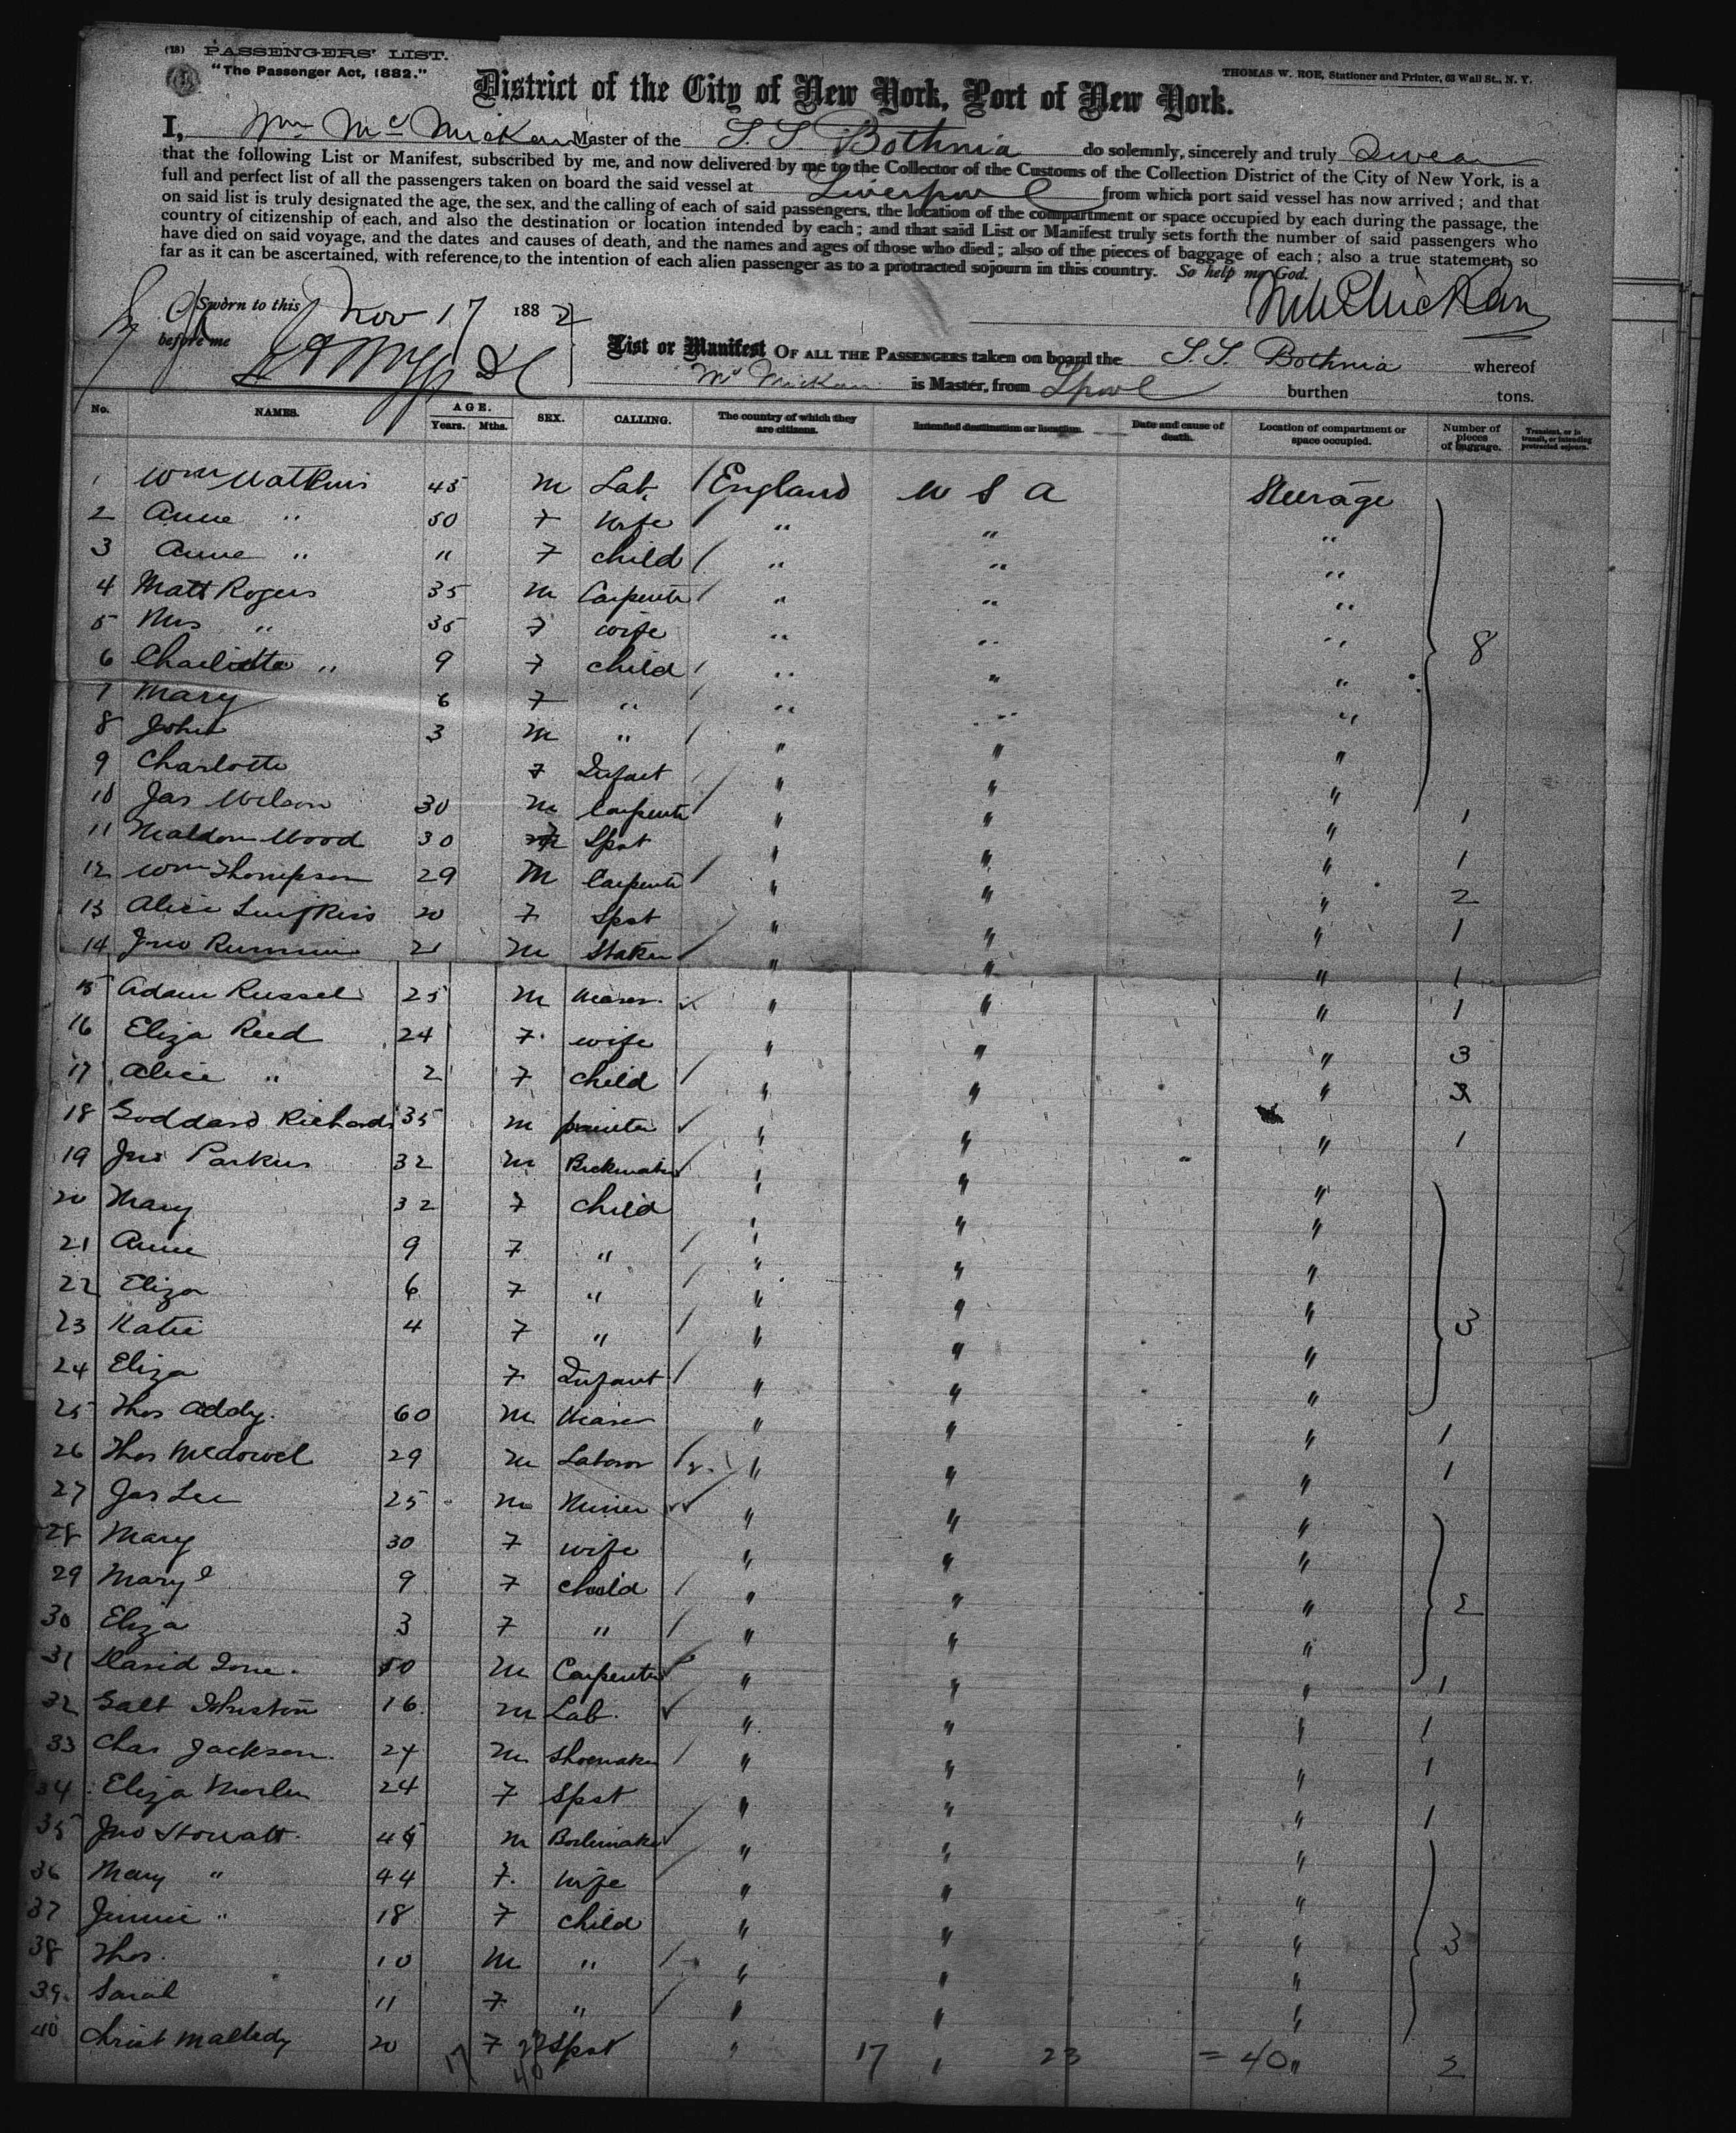 (18) PASSENGERS' LIST.
"The Passenger Act, 1882."
THOMAS W. ROE, Stationer and Printer, 63 Wall St., N. Y.
District of the City of New York, Port of New York.
I, Wm McMickan Master of the S. S. Bothnia do solemnly, sincerely and truly Swear
that the following List or Manifest, subscribed by me, and now delivered by me to the Collector of the Customs of the Collection District of the City of New York, is a
full and perfect list of all the passengers taken on board the said vessel at Liverpool from which port said vessel has now arrived; and that
on said list is truly designated the age, the sex, and the calling of each of said passengers, the location of the compartment or space occupied by each during the passage, the
country of citizenship of each, and also the destination or location intended by each; and that said List or Manifest truly sets forth the number of said passengers who
have died on said voyage, and the dates and causes of death, and the names and ages of those who died; also of the pieces of baggage of each; also a true statement, so
far as it can be ascertained, with reference to the intention of each alien passenger as to a protracted sojourn in this country. So help me God.
Sworn to this Nov 17 1882
before me
WMcMickan
List or Manifest OF ALL THE PASSENGERS taken on board the S. S. Bothnia whereof
McMickan is Master, from Lpool burthen tons.
No. NAMES. AGE. Years. Mths. SEX. CALLING. The country of which they are citizens. Intended destination or location. Date and cause of death. Location of compartment or space occupied. Number of pieces of baggage. Transient, or in transit, or intending protracted sojourn.
1 Wm Watkins 45 M Lab England U S A Steerage
2 Anne " 50 F Wife " " "
3 Anne " " F child " " "
4 Matt Rogers 35 M Carpenter " " "
5 Mrs " 35 F wife " " "
6 Charlotte " 9 F child " " " 8
7 Mary 6 F " " " "
8 John 3 M " " " "
9 Charlotte F Infant " " "
10 Jas Wilson 30 M Carpenter " " " 1
11 Wood 30 F Spst " " " 1
12 Wm Thompson 29 M Carpenter " " " 2
13 Alice 20 F Spst " " " 1
14 Jno 21 M " " " 1
15 Adam Russel 25 M " " " 1
16 Eliza Reed 24 F wife " " " 3
17 Alice " 2 F child " " "
18 Goddard Richards 35 M painter " " " 1
19 Jno Parkins 32 M " " "
20 Mary 32 F child " " "
21 Anne 9 F " " " "
22 Eliza 6 F " " " "
23 Katie 4 F " " " " 3
24 Eliza F Infant " " "
25 Thos Addy. 60 M " " " 1
26 Thos McDowel 29 M Labor " " " 1
27 Jas Lee 25 M Miner " " "
28 Mary 30 F wife " " "
29 Mary E 9 F child " " "
30 Eliza 3 F " " " " 2
31 David 50 M Carpenter " " " 1
32 Galt Johnston 16 M Lab. " " " 1
33 Chas Jackson. 24 M Shoemaker " " " 1
34 Eliza 24 F Spst " " " 1
35 Jno Howatt 45 M Boilermaker " " "
36 Mary " 44 F. wife " " "
37 Jennie " 18 F child " " "
38 Thos. 10 M " " " " 3
39 Sarah 11 F " " " "
40 Christ 20 F Spst " " " 2
17 23 40 17 23 = 40